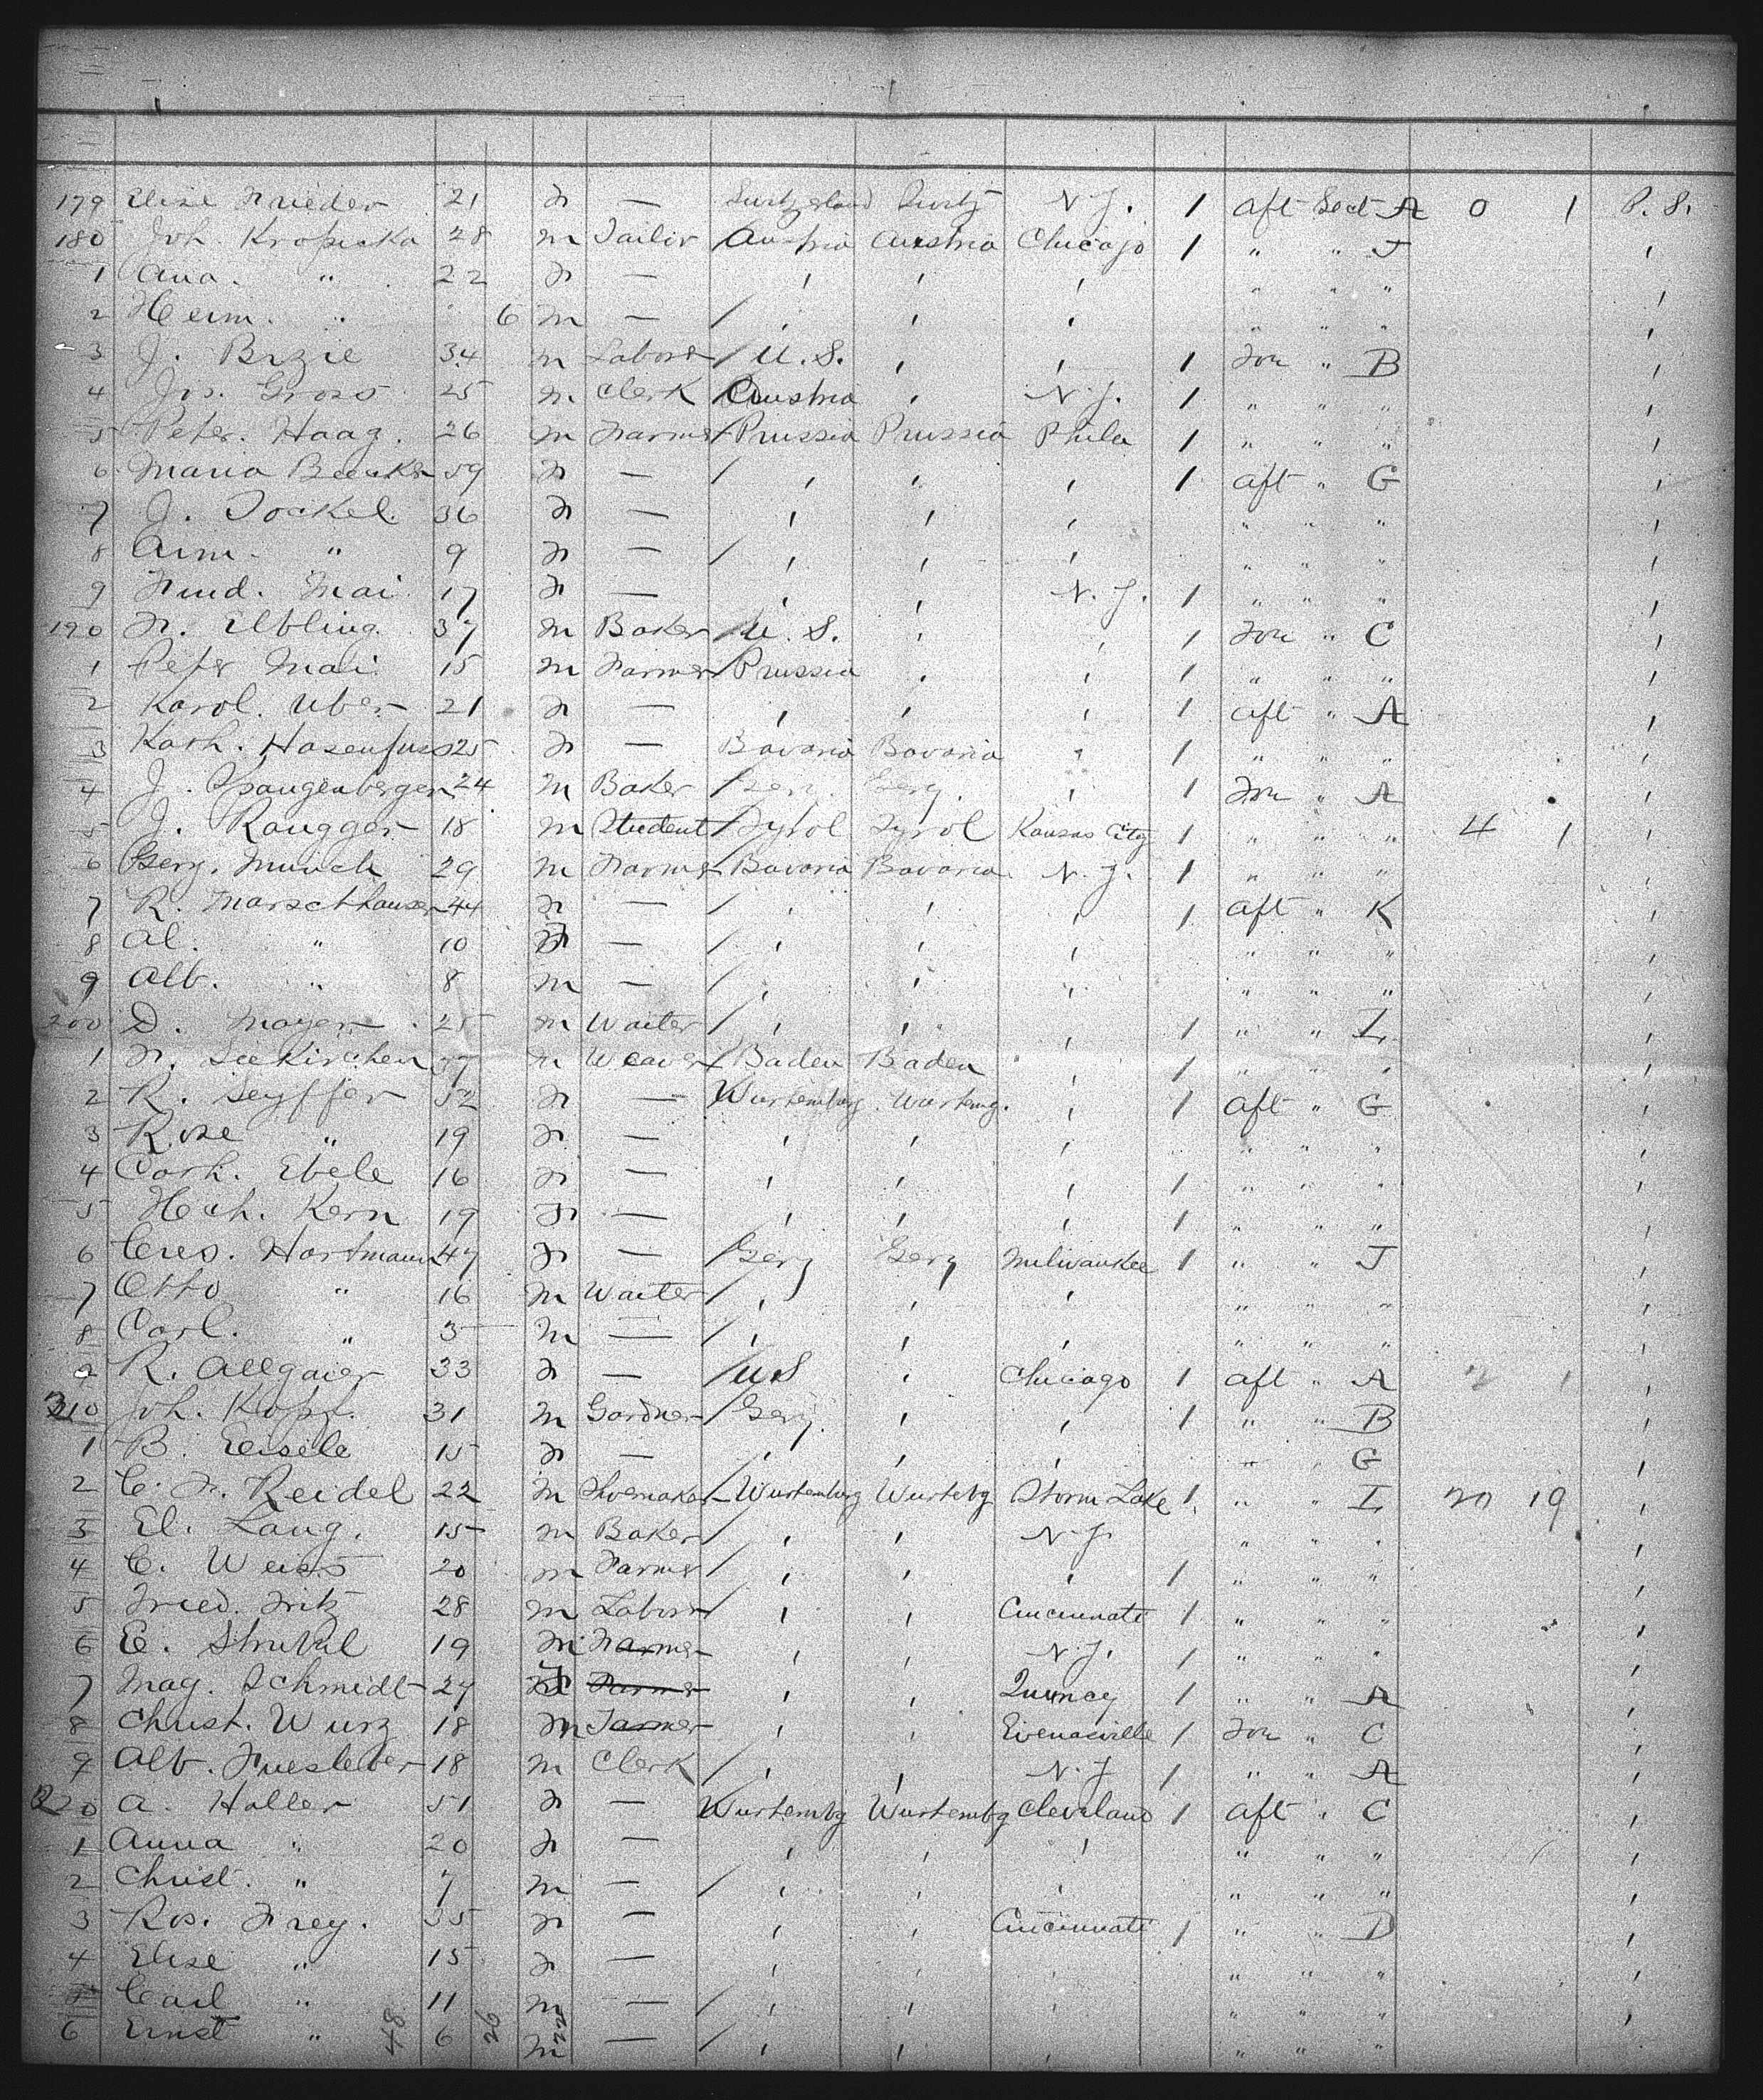 179 Elise Frieder 21 F — Switzerland Switz N.J. 1 aft Sect A 0 1 P. S.
180 Joh. Kropicka 28 m Tailir Austria Austria Chicago 1 " " J
1 Ana. " 22 F — " " "
2 Heim. " 6 m — / " " "
3 J. Brzie 34 m Labore / U. S. 1 For " B
4 Jos. Gross 25 m Clerk / Austria N. J. 1 " " "
5 Peter. Haag. 26 m Farmer / Prussia Prussia Phila 1 " " "
6 Maria Becker 59 F — / 1 aft " G
7 J. Jockel. 36 F — " " "
8 Ann. " 9 F — / " " "
9 Mai. 17 F — N. J. 1 " " "
190 F. Elbling. 37 m Baker / U. S. 1 For " C
1 Peter Mai. 15 m Farmer / Prussia 1 " " "
2 Karol. Uber 21 F — 1 aft " A
3 Kath. Hasenfuss 25 F — Bavaria Bavaria 1 " " "
4 J. Spangenberger 24 m Baker / Gery. Gery. 1 For " A
5 J. Raugger 18 m Student / Tyrol Tyrol Kansas City 1 " " " 4 1
6 Gerg. Munch 29 m Farmer Bavaria Bavaria N. J. 1 " " "
7 R. Marschhauser 44 F — / 1 aft " K
8 Al. " 10 F — / " " "
9 Alb. " 8 m — / " " "
200 D. Mayer 25 m Waiter / 1 " " I
1 F. Seekirchen 37 m Weaver / Baden Baden 1 " "
2 R. Seyffer 52 F — Wurtemburg. Wurtemg. 1 aft " G
3 Rose " 19 F — " " "
4 Cath. Ebele 16 F — 1 " " "
5 Hech. Kern 19 F — 1 " " "
6 Cres. Hartmann 47 F — / Gery Gery Milwaukee 1 " " J
7 Otto " 16 m Waiter / " " "
8 Carl. " 5 m — / " " "
9 R. Allgaier 33 F — / U S Chicago 1 aft " A 2 1
210 Joh. Kopf. 31 m Gardner / Gery. 1 " " B
1 B. Eisele 15 F — " " G
2 C. F. Reidel 22 m Shoemaker Wurtemburg Wurtebg Storm Lake 1 " " I 20 19
3 El. Laug. 15 m Baker / N. J. " " "
4 C. Weiss 20 m Farmer / 1 " " "
5 Fried. Fritz 28 m Labore / Cincinnati 1 " " "
6 E. 19 m Farmer N. J. 1 " " "
7 Mag. Schmidt 27 F Farmer Quincy 1 " " A
8 Christ. Wurz 18 m Farmer Evenasville 1 For " C
9 Alb. 18 m Clerk / N. J 1 " " A
220 A. Haller 51 F — Wurtembg Wurtembg Cleveland 1 aft " C
1 Anna " 20 F — " " "
2 Christ. " 7 m — / " " "
3 Ros. Frey. 35 F — Cincinnati 1 " " D
4 Elise " 15 F — " " "
5 Carl " 11 m — / " " "
6 Ernst " 6 m — / " " "
48 26